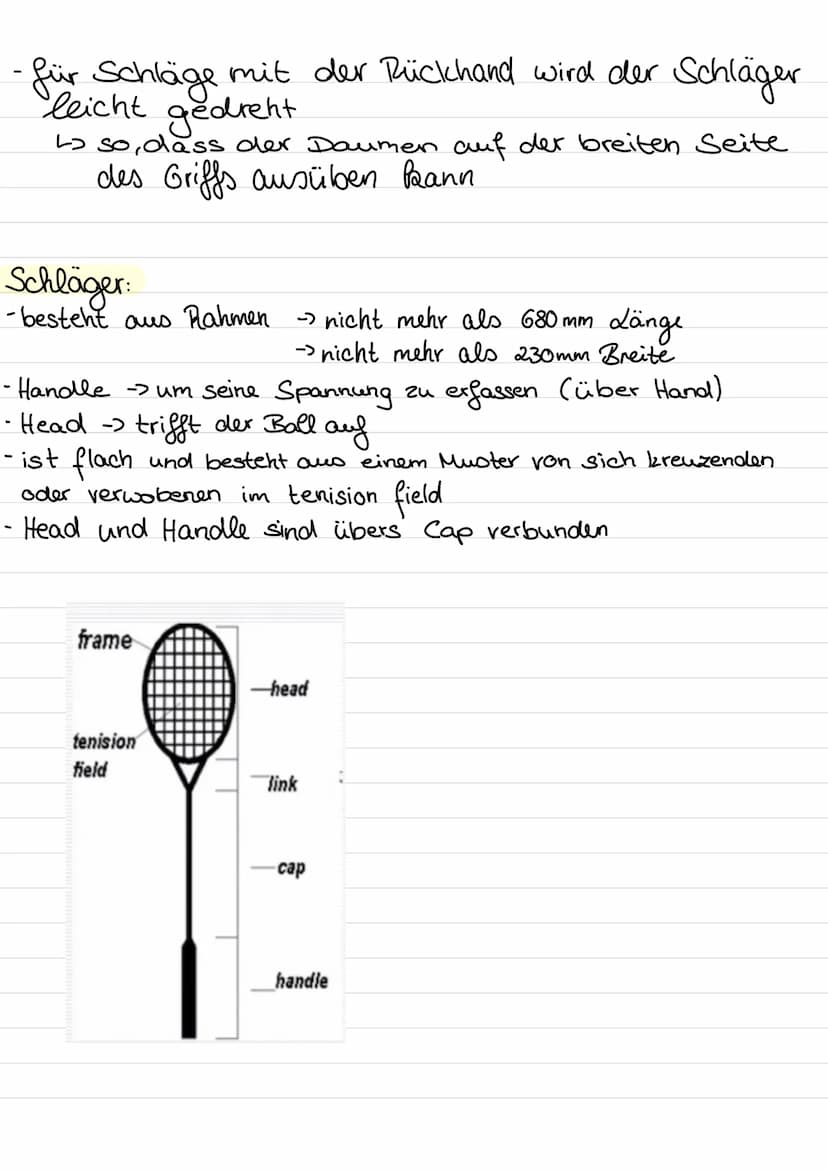 - für Schläge mit der Rückhand wird der Schläger
leicht gedreht
↳ so, dass der Daumen auf der breiten Seite
des Griffs ausüben kann
Schläger:
- besteht aus Rahmen → nicht mehr als 680 mm Länge
→ nicht mehr als 230mm Breite
- Handle → um seine Spannung zu erfassen (über Hand)
- Head → trifft der Ball auf
- ist flach und besteht aus einem Muster von sich kreuzenden
oder verwobenen im tenision field
- Head und Handle sind übers Cap verbunden
frame
head
tenision
field
link
cap
handle